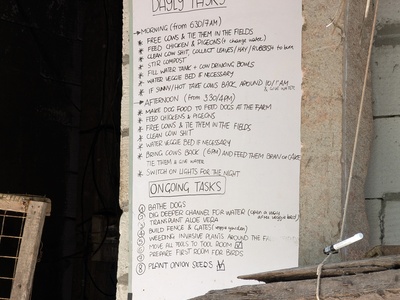 DAILY TASKS
MORNING (from 630/7AM)
* FREE COWS & TIE THEM IN THE FIELDS
* FEED CHICKEN & PIGEONS (+ change water)
* CLEAN COW SHIT, COLLECT LEAVES / HAY / RUBBISH to burn
* STIR COMPOST
* FILL WATER TANK + COW DRINKING BOWLS
* WATER VEGGIE BED IF NECESSARY
* IF SUNNY/HOT TAKE COWS BACK AROUND 10/11AM
& GIVE WATER
AFTERNOON (from 330/4PM)
* MAKE DOG FOOD TO FEED DOGS AT THE FARM
* FEED CHICKENS & PIGEONS
* FREE COWS & TIE THEM IN THE FIELDS
* CLEAN COW SHIT
* WATER VEGGIE BED IF NECESSARY
* BRING COWS BACK (6PM) AND FEED THEM BRAN OR CAKE
TIE THEM & GIVE WATER
* SWITCH ON LIGHTS FOR THE NIGHT
ONGOING TASKS
1 BATHE DOGS
2 DIG DEEPER CHANNEL FOR WATER (open a
3 TRANSPLANT ALOE VERA
4 BUILD FENCE & GATES (veggie garden)
5 WEEDING INVASIVE PLANTS AROUND THE
6 MOVE ALL TOOLS TO TOOL ROOM ☑
7 PREPARE FIRST ROOM FOR BIRDS
8 PLANT ONION SEEDS ☑